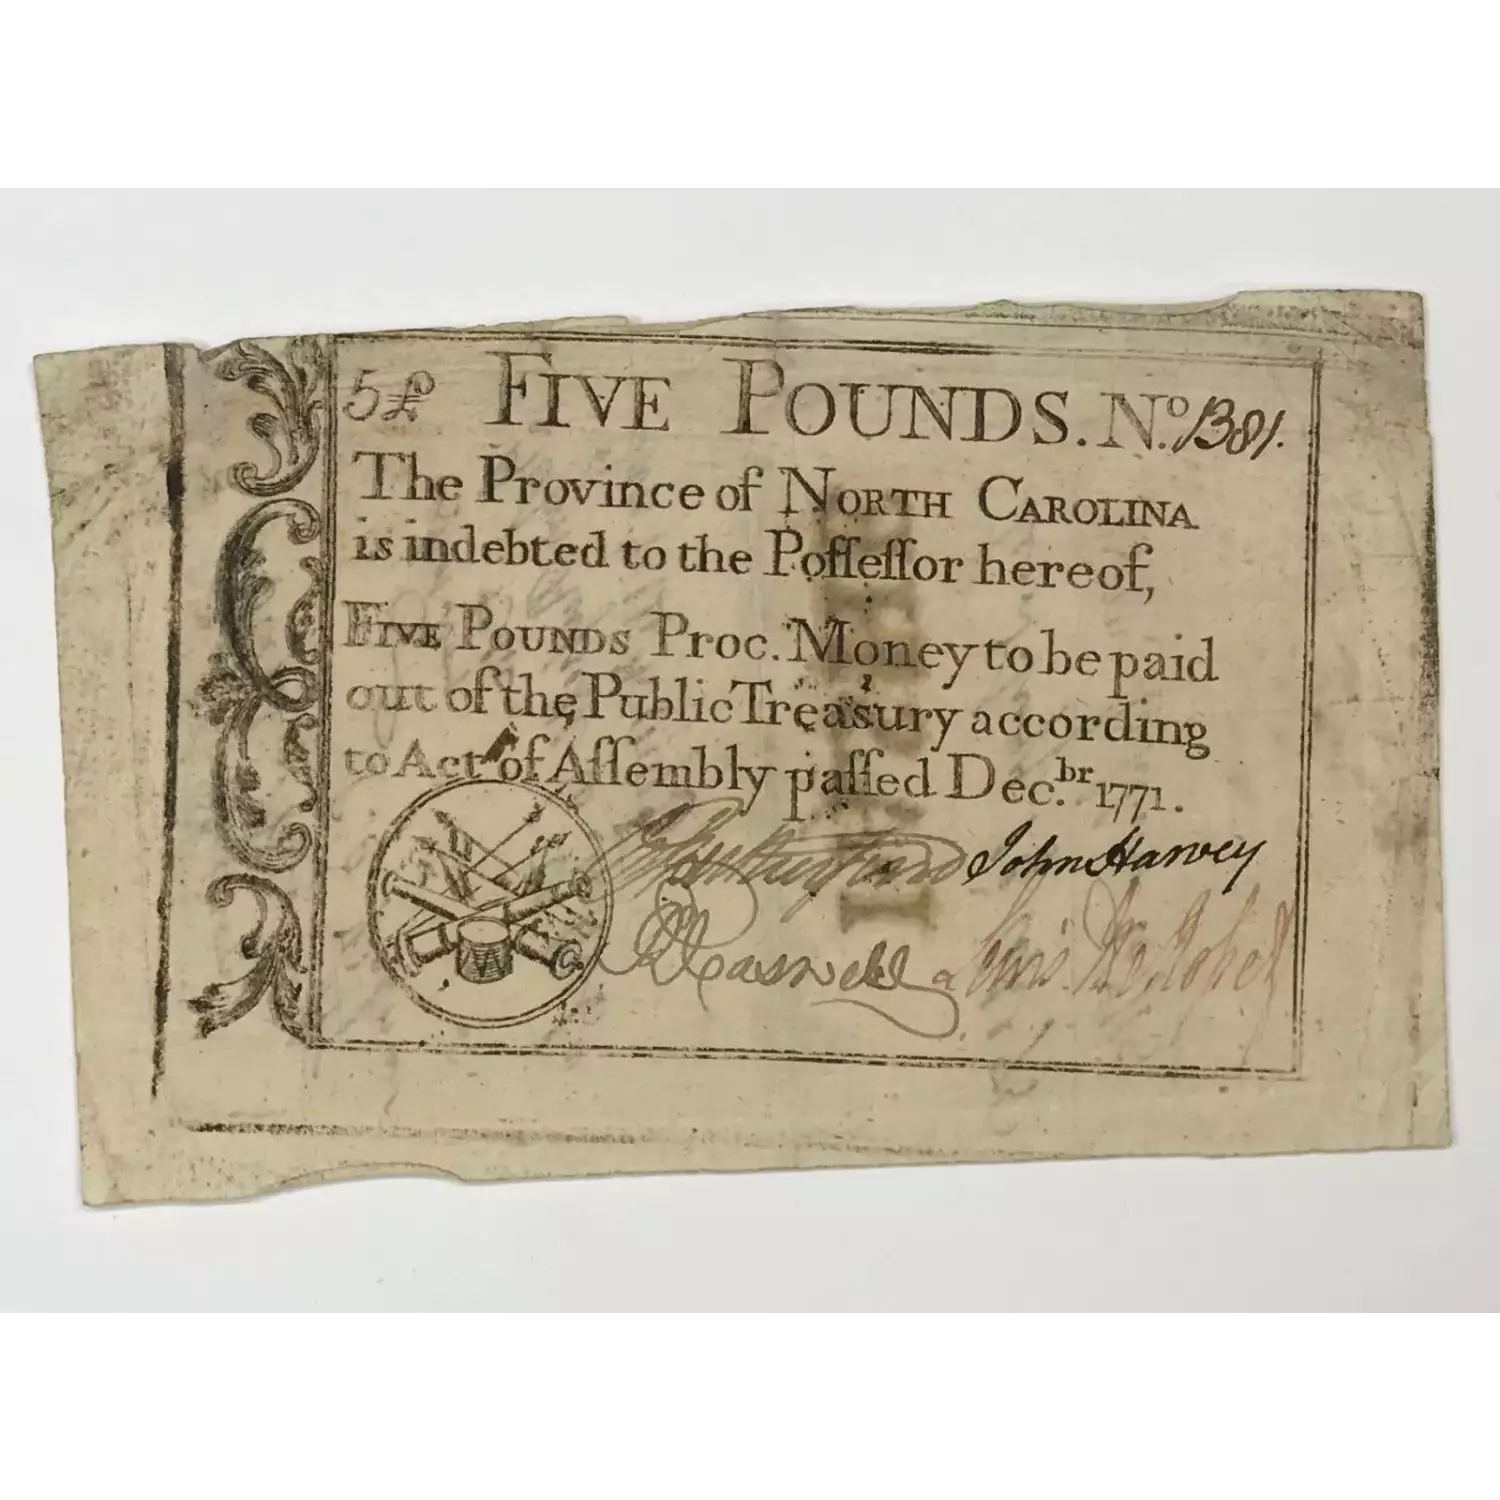 5£ FIVE POUNDS. No. 1381.
The Province of NORTH CAROLINA
is indebted to the Poſſeſſor hereof,
FIVE POUNDS Proc. Money to be paid
out of the Public Treasury according
to Act of Aſſembly paſſed Dec.br 1771.
Rutherfurd John Harvey
R Caswell Lewis De Rosset